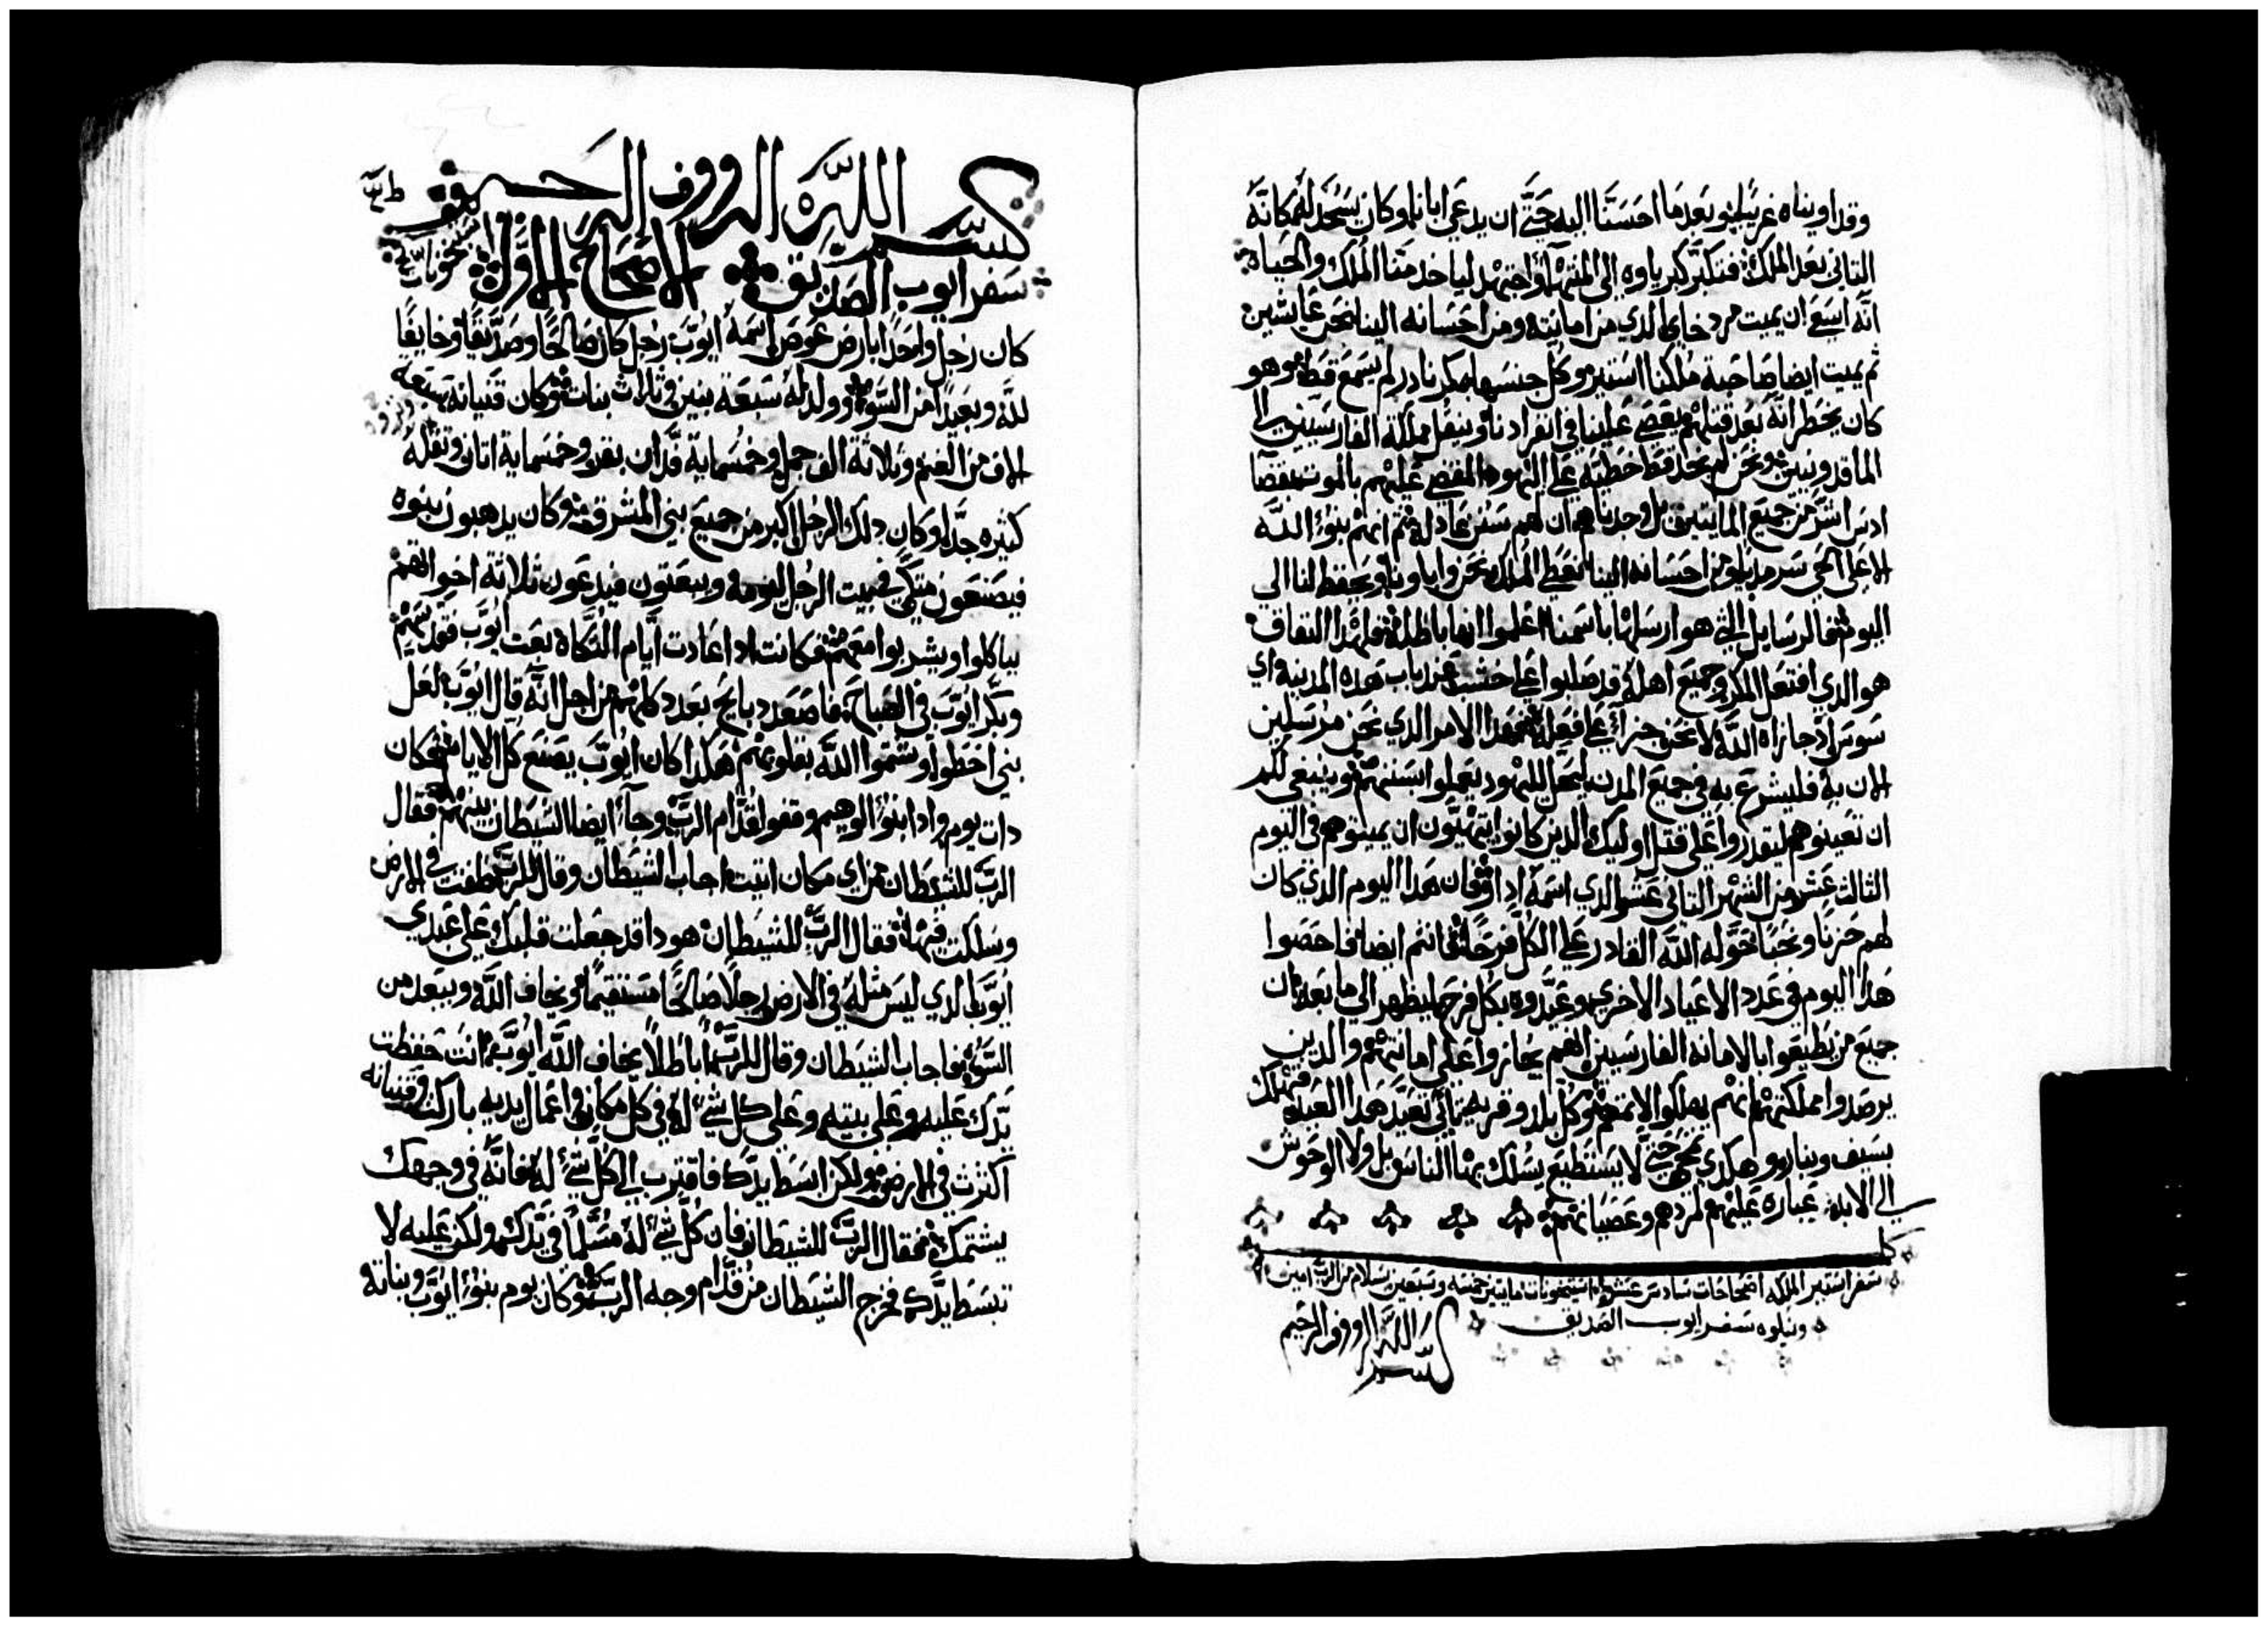 وقد اويناه غريبًا وبعدما احسنّا اليه حتَّى ان يدعي ابانا وكان يسجد له مكانة
التاني بعد الملك فتكبّر كبرياوه الى المنتهى واجتهد لياخد منّا الملك والحياة
انّه ايسع ان يميت مردخاي الدي من امانته ومن احسانه الينا نحن عايشين
تم يميت ايضا صاحبة ملكنا استير وكل جنسها بمكر نادر لم يسمع قط وهو
كان يخطر انّه بعد قتلهم يعصي علينا في انفرادنا وينقل مملكة الفارسيين الى
الماقدونيين ونحن لم نجد قط خطية على اليهود المقضي عليهم بالموت بقضا
اشرّ من جميع المايتين بل وجدناهم ان لهم سنن عادلة تم انهم بنوُ اللّه
الاعلى الحي سرمديا ومن احسانه الينا نعطي الملك نحن واباونا ويحفظ لنا الى
اليوم فالرسايل التي هو ارسلها باسمنا اعلموا انها باطلة فلهدا النفاق
هو الدي افتعل المكر وجميع اهله قد صلبوا على خشب عند باب هده المدينة اي
سوس اد جازاه اللّه لا نحن جزاءً على فعله فهدا الامر الدي نحن مرسلين
الان به فليشرع به في جميع المدن ليحل لليهود يعملوا بسننهم وينبغي لكم
ان تعينوهم لتقدروا على قتل اوليك الدين كانوا يتهيّون ان يميتوهم في اليوم
التالت عشر من الشهر التاني عشر الدي اسمه ادار فان هدا اليوم الدي كان
لهم حزنا ونحبًا حوّله اللّه القادر على الكل فرحًا فانتم ايضا فاحصوا
هدا اليوم في عدد الاعياد الاخرى وعيّدوه بكل فرح ليظهر الى ما بعد ان
جميع من يطيعوا بالامانة الفارسيين انهم يجازوا على امانتهم والدين
يرصدوا مملكتهم انهم يهلكوا لاتمهم وكل بلد وقرية تابى تعيّد هدا العيد فتهلك
بسيف وبنار وهكدى تمحى حتَّى لا يستطيع يسلك بها الناس بل ولا الوحوش
الى الابد عبارة عليهم لمردهم وعصيانهم
كمل
سفر استير الملكه اصحاحات سادس عشر استيخونات مايتين خمسه وسبعين بسلام من الرب امين
ويتلوه سفر ايوب الصديق
بسم اللّه الرووف الرحيم
بسم اللّه الرووف الرحيم
سفر ايوب الصديق الاصحاح الاوّل
كان رجل واحدًا بارض عوص اسمه ايوب رجل كان صالحًا وصدّيقًا وخايفًا
للّه وبعيدًا من السوّ وولد له سبعة بنين وتلات بنات وكان قنيانه سبعة
الاف من الغنم وتلاتة الف جمل وخمسماية فدّان بقر وخمسماية اتان ونقله
كتيره جدّا وكان دلك الرجل اكبر من جميع بني المشرق وكان يدهبون بنوه
فيصنعون متكي في بيت الرجل ليومه ويبعتون فيدعون تلاتة اخواتهم
بياكلوا ويشربوا معهم فكانت ادا عادت ايّام التكاة بعت ايوب فقدسهم
وبكّر ايوب في الصباح فاصعد دبايح بعدد كلهم من اجل انّه قال ايوب لعل
بني اخطوا وشتموا اللّه بقلوبهم هكدا كان ايوب يصنع كل الايام فكان
دات يوم وادا بنوُ الوهيم وقفوا قدّام الربّ وجآ ايضا الشيطان بينهم فقال
الربّ للشيطان من اي مكان اتيت اجاب الشيطان وقال للرب طفت في الارض
وسلكت فيها فقال الربّ للشيطان هودا قد جعلت قلبك على عبدي
ايوب الدي ليس متله في الارض رجلاً صالحًا مستقيمًا ويخاف اللّه ويبتعد من
السوء فاجاب الشيطان وقال للرب اباطلاً يخاف اللّه ايوب انت حفظت
يدك عليه وعلى بيته وعلى كل شي له في كل مكان في اعمال يديه باركت وقنيانه
اكترت في الارض ولكن ابسط يدّك فاقترب الى كل شي له فانّه في وجهك
يشتمك فقال الربّ للشيطان فان كل شي له مسلّمًا في يدك ولكن عليه لا
تبسط يدّك فخرج الشيطان من قدّام وجه الربّ وكان يوم بنوُ ايوب وبناته